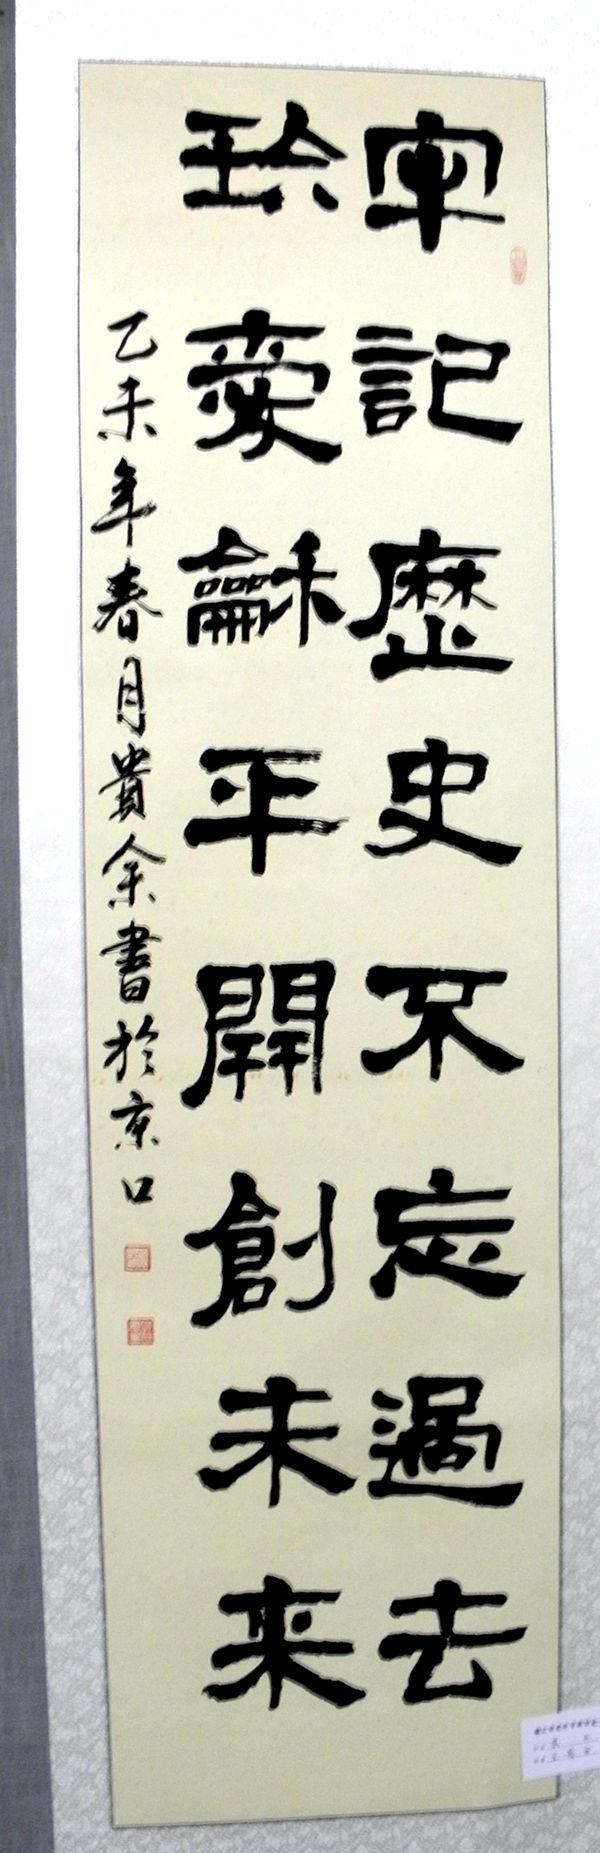 牢記歷史不忘過去
珎愛龢平開創未来
乙未年春月貴余書於京口